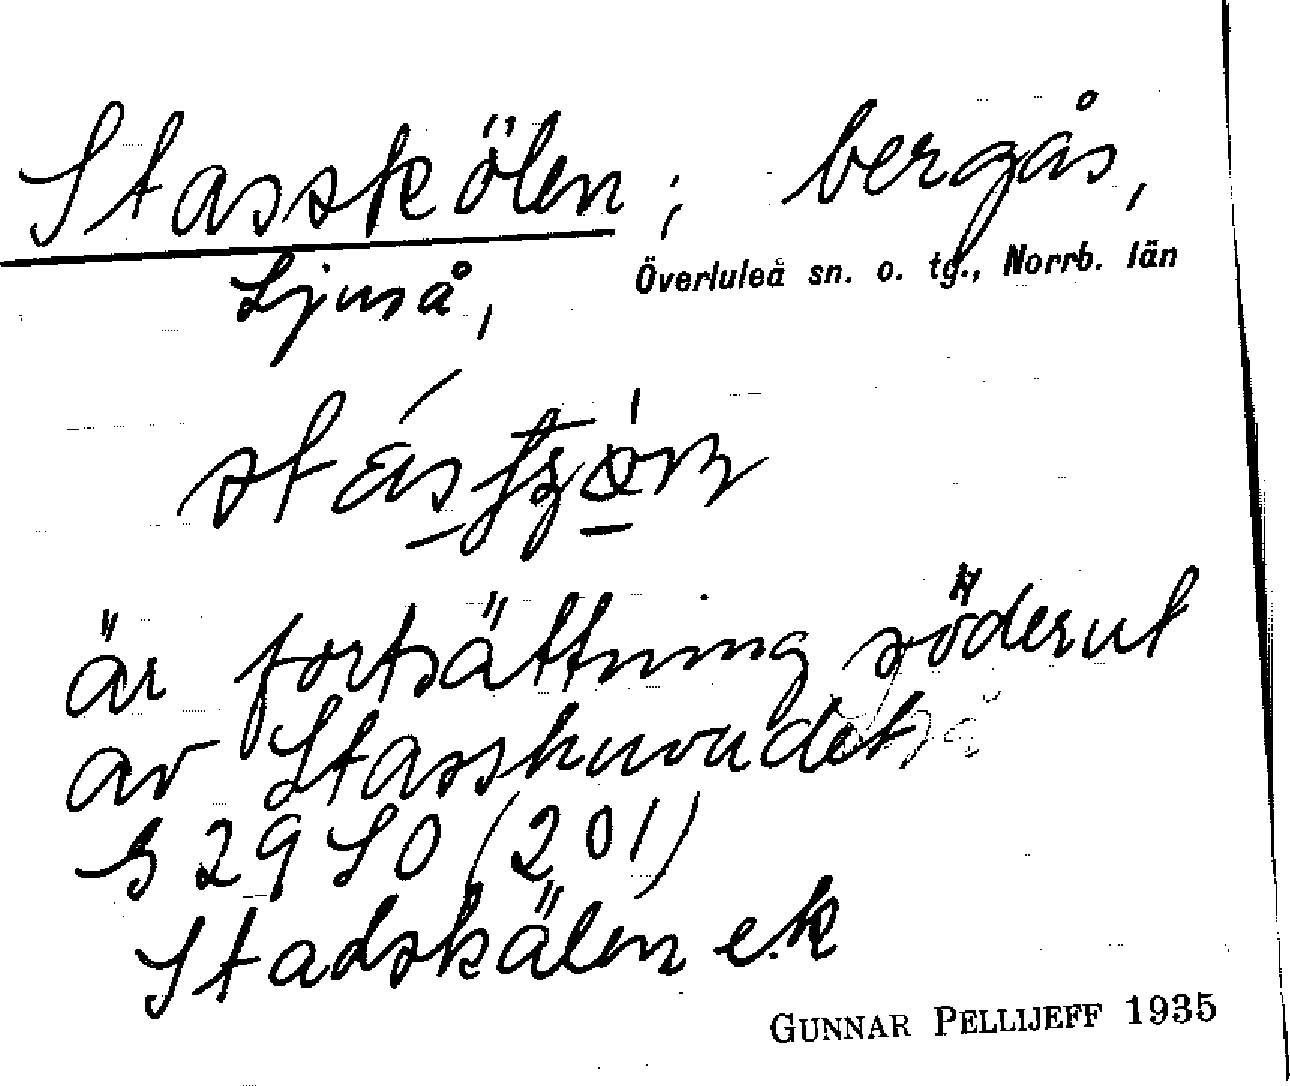 Stasskölen; bergås,
Ljuså, Överluleå sn. o. tg., Norrb. län
är fortsättning söderut
av Stasshuvudet på
Stadskälen e.k
GUNNAR PELLIJEFF 1935